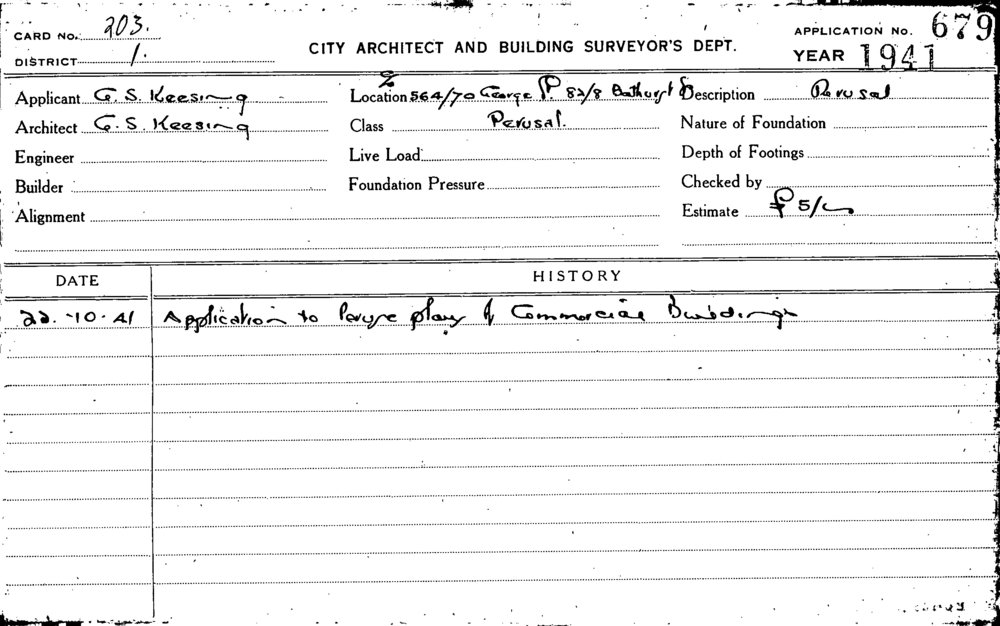 CARD No. 203.
APPLICATION No. 679
DISTRICT 1.
CITY ARCHITECT AND BUILDING SURVEYOR'S DEPT.
YEAR 1941
Applicant G. S. Keesing
Location 564/70 George St. 82/8 Bathurst St
Description Perusal
Architect G. S. Keesing
Class Perusal.
Nature of Foundation
Engineer
Live Load
Depth of Footings
Builder
Foundation Pressure
Checked by
Alignment
Estimate £ 5/-
DATE
HISTORY
22.-10-41 Application to Peruse plans of Commercial Buildings